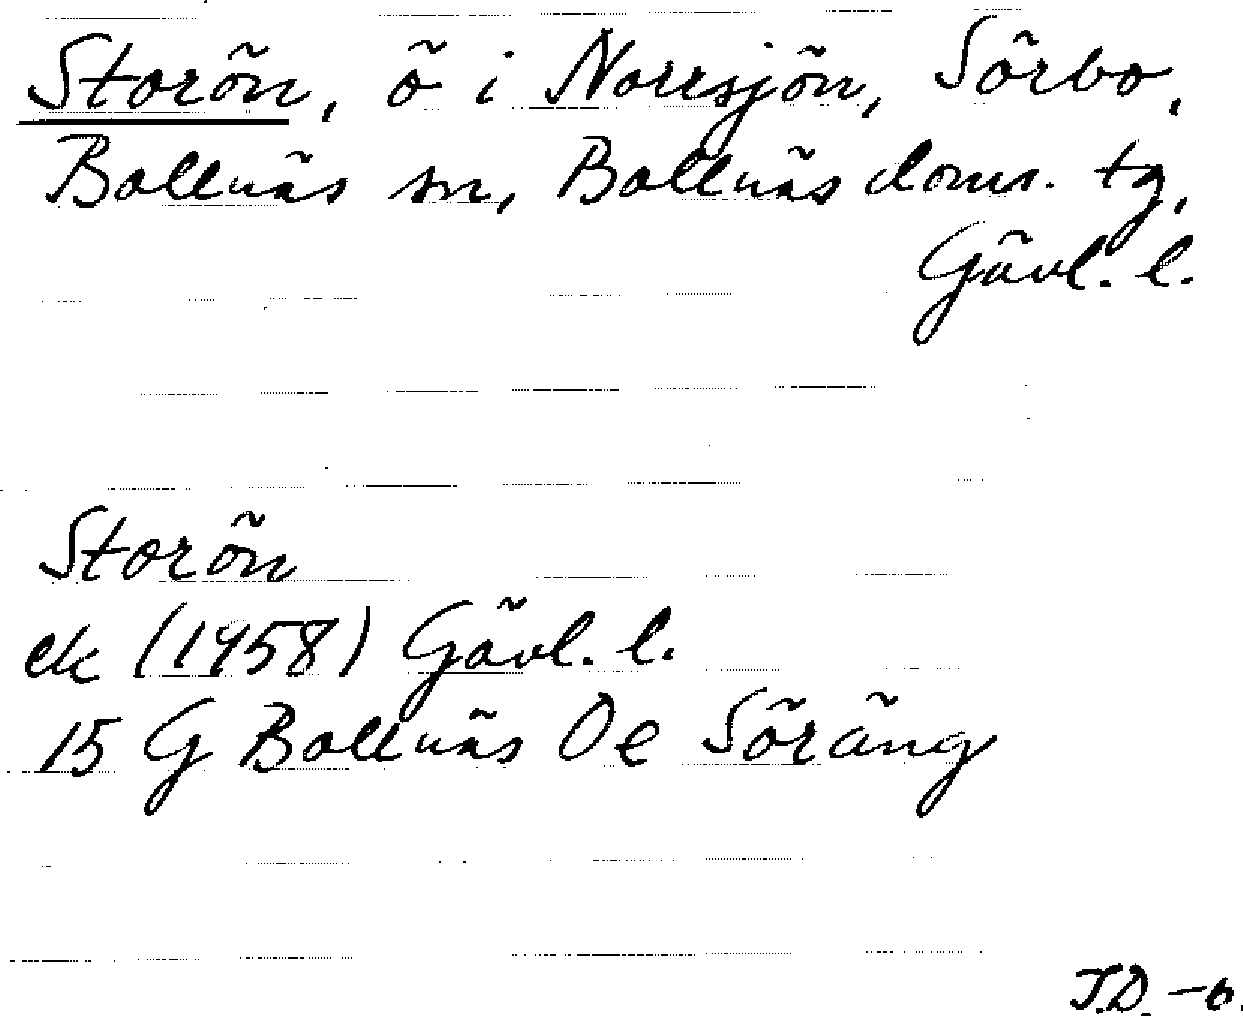 Storön, ö i Norrsjön, Sörbo,
Bollnäs sn, Bollnäs doms. tg,
Gävl. l.
Storön
ek (1958) Gävl. l.
15 G Bollnäs 0 e Söräng
J.D. -6.